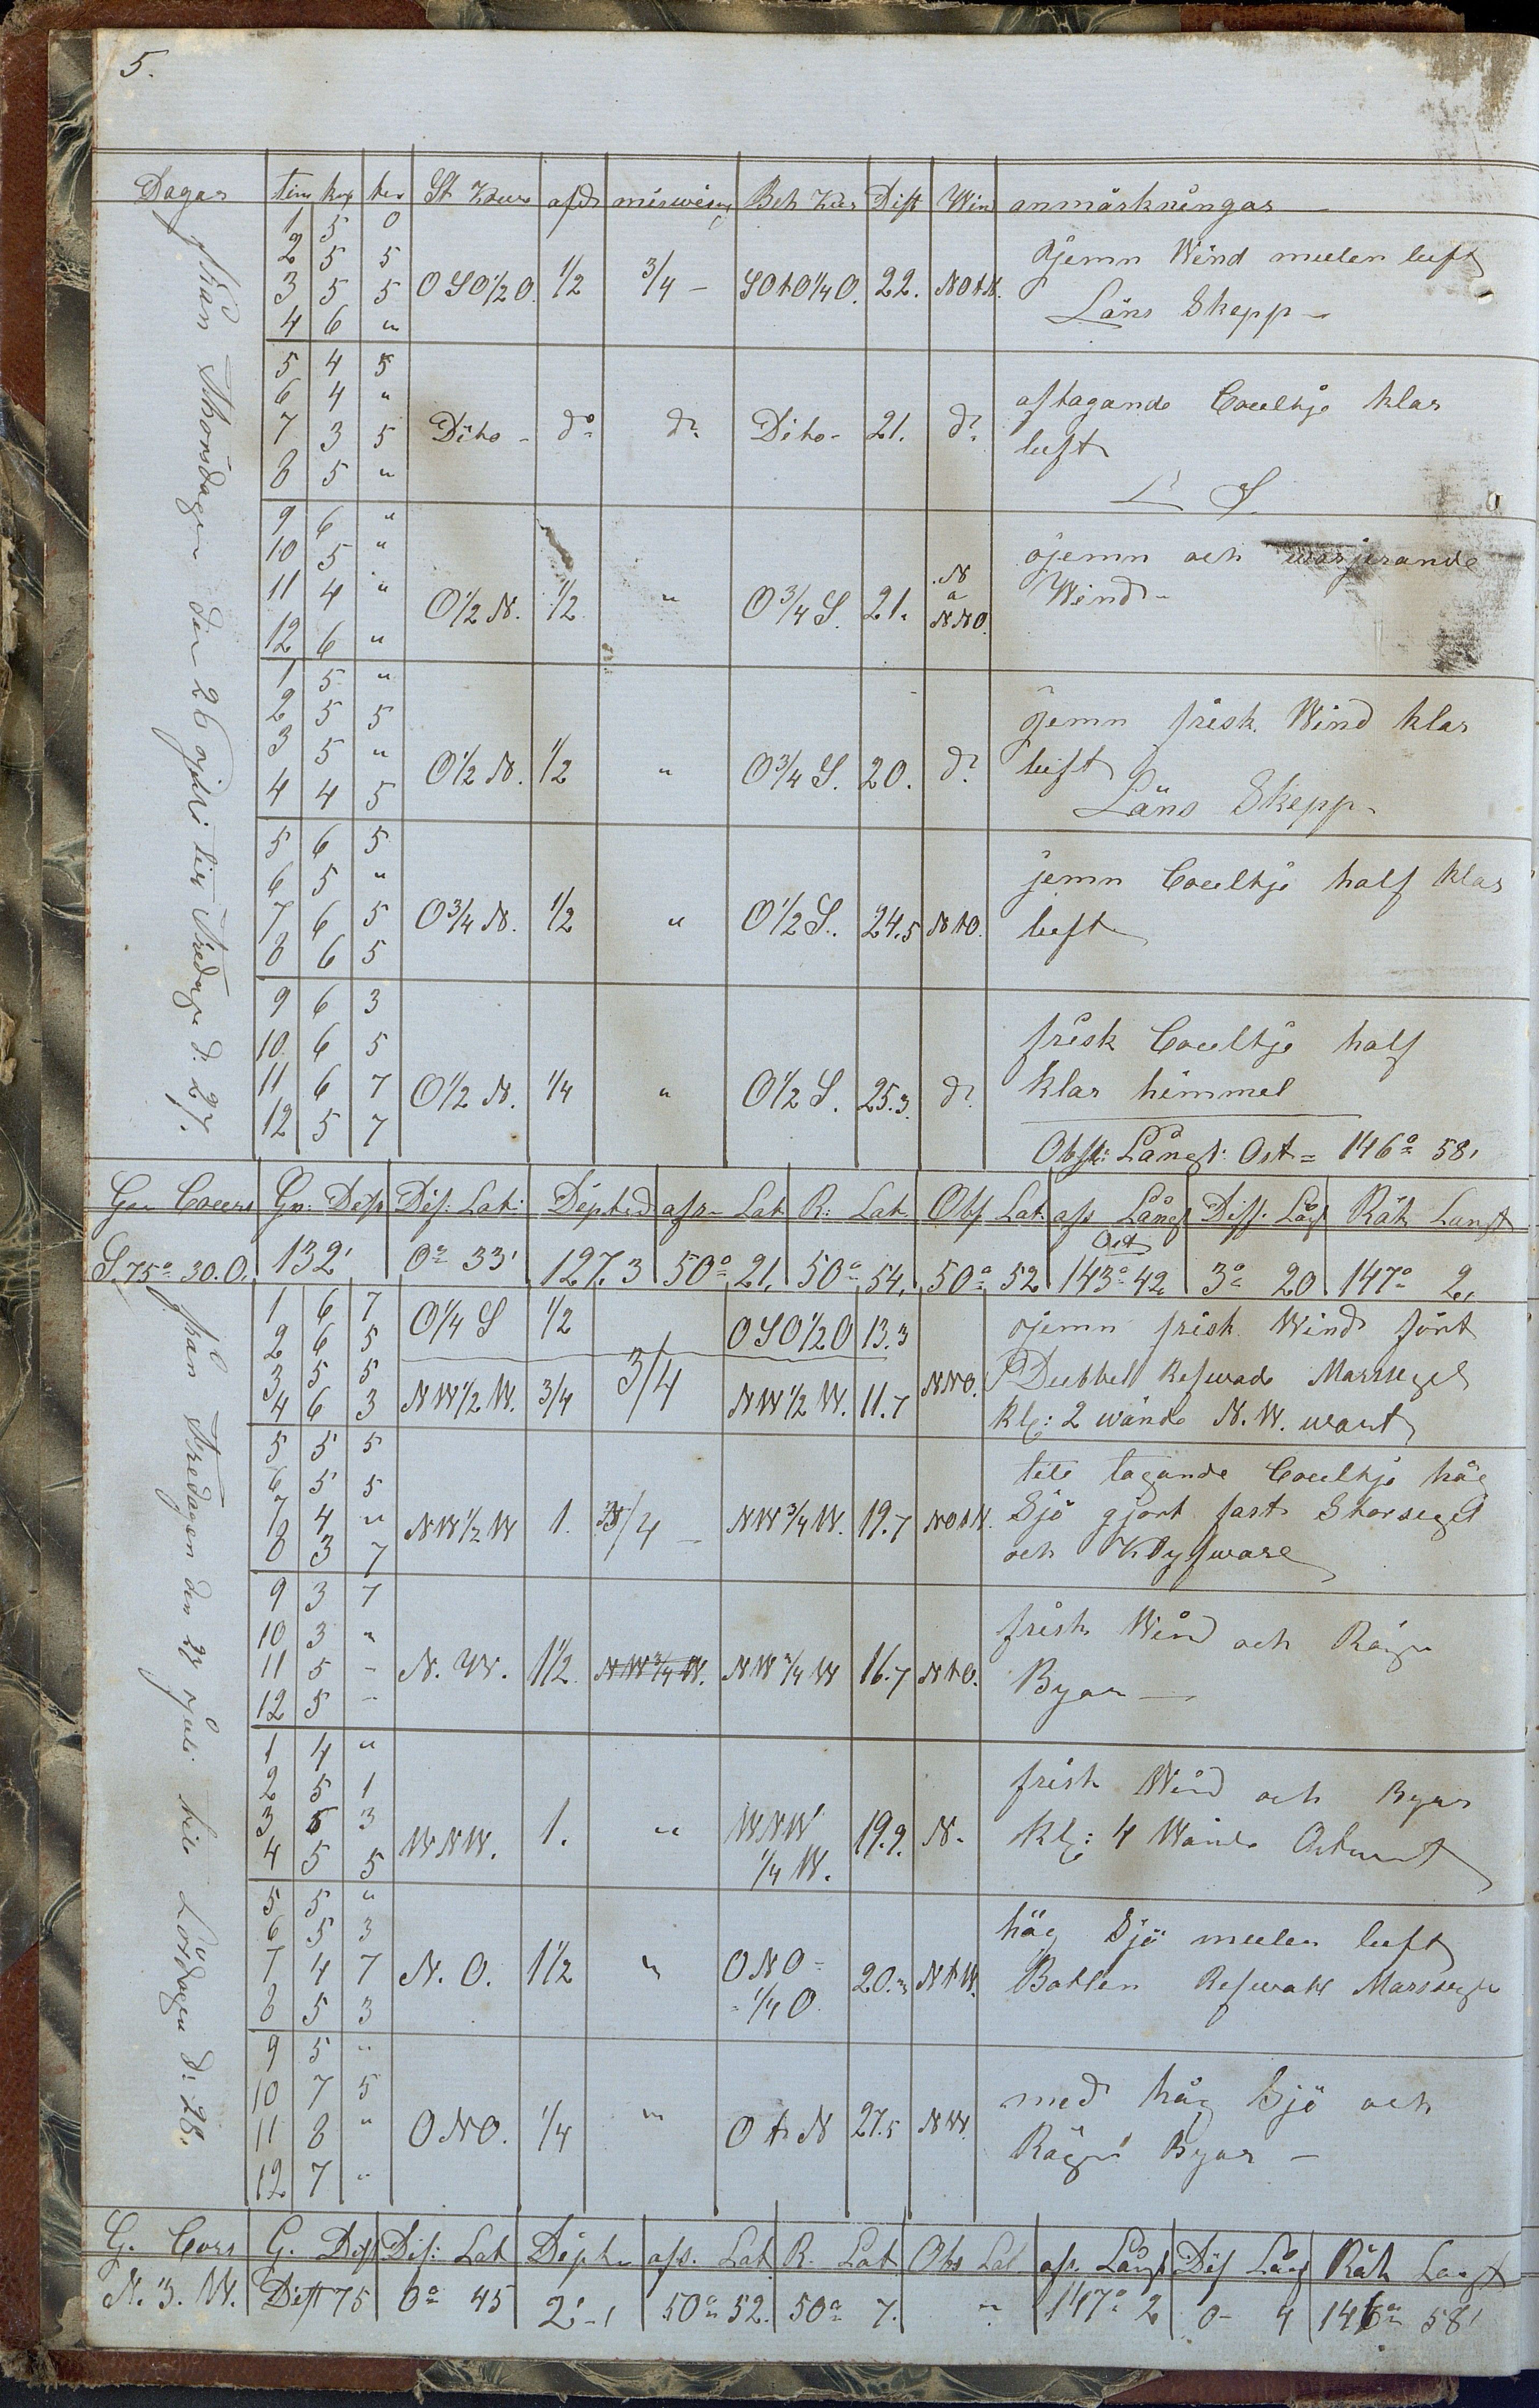 5.
Dagar tim knp ter St Kours afdr misvisng Beh Kurs Dist Win anmärkningar
från Thorsdagen den 26 Juli till Fredagn d: 27.
1 5 0
2 5 5 ojemn Wind mulen luft
3 5 5 OSO 1/2 O. 1/2 3/4 - SOtO 1/4 O. 22. NOtN.
4 6 " Läns Skepp -
5 4 5
6 4 " aftagande Coultje klar
7 3 5 Dito - do d: Dito - 21. d: luft
8 5 " L S.
9 6 "
10 5 " ojemn och warjerande
11 4 " O 1/2 N. 1/2 " O 3/4 S. 21. N a NNO. Wind -
12 6 "
1 5 "
2 5 5 ojemn frisk Wind klar
3 5 " O 1/2 N. 1/2 " O 3/4 S. 20. d: luft
4 4 5 Läns Skepp -
5 6 5
6 5 " jemn Coultje half klar
7 6 5 O 3/4 N. 1/2 " O 1/2 S. 24.5 NtO. luft
8 6 5
9 6 3
10. 6 5 frisk Coultje half
11 6 7 O 1/2 N. 1/4 " O 1/2 S. 25.3. d: klar himmel
12 5 7
Obsr: Långd: Ost = 146° 58'
Gen Cours Gn: Dist Dif: Lat: Dephed afr- Lat R: Lat. Obs Lat. aff Långd Diff. Lågd Räk Langt
Ost
S. 75° 30. O. 132' 0° 33' 127.3 50° 21, 50° 54, 50° 52 143° 42 3° 20 147° 2,
från Fredagen den 27 Juli till Lördagen d: 28.
1 6 7 O 1/4 S 1/2 OSO 1/2 O 13.3 ojemn frisk Wind fört
2 6 5
3 5 5 NW 1/2 W. 3/4 3/4 NW 1/2 W. 11.7 NNO. Dubbel Refwade Marssegel
4 6 3 kl: 2 wände N. W. wart
5 5 5
6 5 5 till tagande Coultje håg
7 4 " NW 1/2 W 1. 3/4 - NW 3/4 W. 19.7 NOtN. Sjö gjort fast Storseget
8 3 7 och Klyfware
9 3 7
10 3 " frisk Wind och Rägn
11 5 - N. W. 1 1/2 NW 3/4 W. NW 3/4 W 16.7 NtO. Byar -
12 5 -
1 4 "
2 5 1 frisk Wind och Byar
3 5 3 WNW. 1. " WNW 1/4 W. 19.9. N. kl: 4 Wände Ostwart
4 5 5
5 5 "
6 5 3 håg Sjö mulen luft
7 4 7 N. O. 1 1/2 " ONO - 1/4 O. 20." NtW. Botten Refwade Marssegel
8 5 3
9 5 "
10 7 5 med håg Sjö och
11 8 " ONO. 1/4 " O t N 27.5 NW. Rägn Byar -
12 7 "
G. Cors G. Dist Dif: Lat Dephe aff. Lat R. Lat Obs Lat af. Långd Dif Lågd Räk Langt
N. 3. W. Dist 75 0° 45 2'-1 50° 52. 50° 7. " 147° 2 0- 4 146° 58'